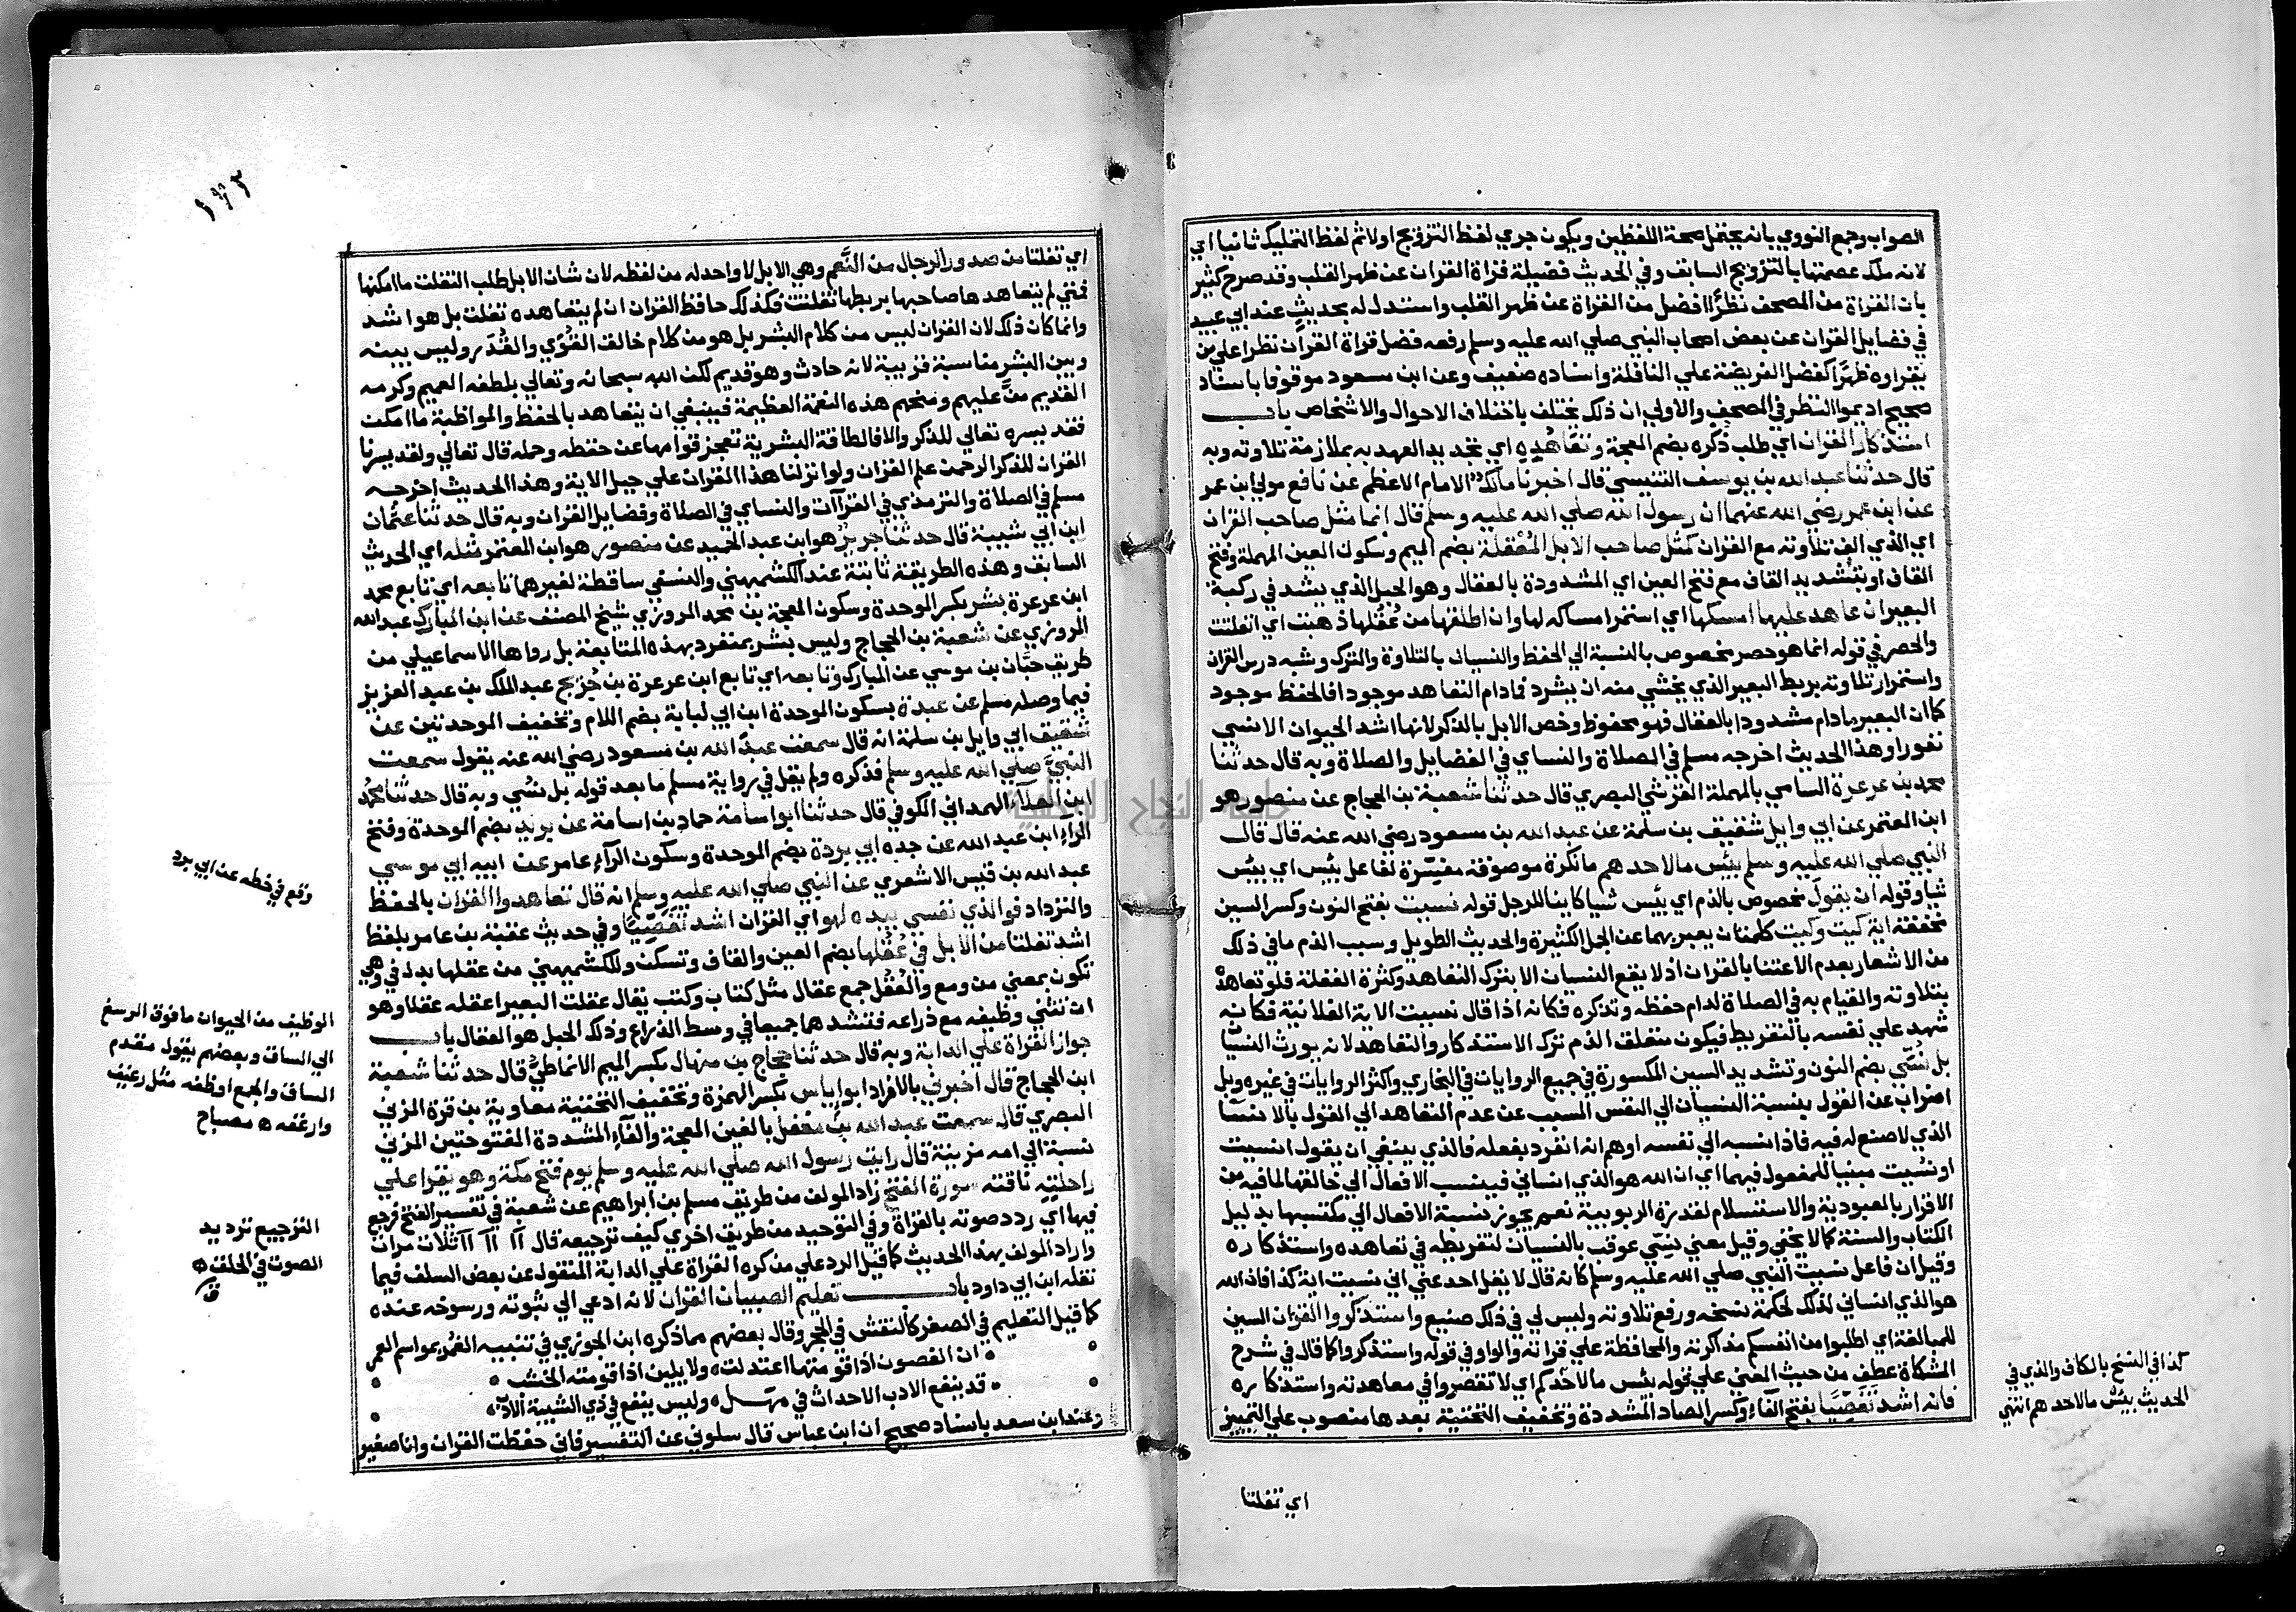 الصواب وجمع النووي بانه يحتمل صحة اللفظين ويكون جري لفظ التزويج اولا ثم لفظ التمليك ثانيا اي
لانه ملك عصمتها بالتزويج السابق وفي الحديث فضيلة قراة القران عن ظهر القلب وقد صرح كثير
بان القراة من المصحف نظرًا افضل من القراة عن ظهر القلب واستدل له بحديثٍ عند ابي عبيد
في فضايل القران عن بعض اصحاب النبي صلي الله عليه وسلم رفعه فضل قراة القران نظرا علي من
يقراوه ظهرًا كفضل الفريضة علي النافلة واسناده ضعيف وعن ابن مسعود موقوفا باسناد
صحيح اديموا النظر في المصحف والاولي ان ذلك يختلف باختلاف الاحوال والاشخاص باب
استذكار القران اي طلب ذكره بضم المعجمة وتعاهُدِهِ اي تجديد العهد به بملازمة تلاوته وبه
قال حدثنا عبد الله بن يوسف التنيسي قال اخبرنا مالك الامام الاعظم عن نافع مولي ابن عمر
عن ابن عمر رضي الله عنهما ان رسول الله صلي الله عليه وسلم قال انما مثل صاحب القران
اي الذي الف تلاوته مع القران كمثل صاحب الابل المُعْقلة بضم الميم وسكون العين المهملة وفتح
القاف او بتشديد القاف مع فتح العين اي المشدودة بالعقال وهو الحبل الذي يشد في ركبة
البعير ان عاهد عليها امسكها اي استمر امساكه لها وان اطلقها من عُقُلها ذهبت اي انفلتت
والحصر في قوله انما هو حصر مخصوص بالنسبة الي الحفظ والنسيان بالتلاوة والترك وشبه درس القران
واستمرار تلاوته بربط البعير الذي يخشي منه ان يشرد فما دام التعاهد موجودا فالحفظ موجود
كما ان البعير ما دام مشدودا بالعقال فهو محفوظ وخص الابل بالذكر لانها اشد الحيوان الانسي
نفورا وهذا الحديث اخرجه مسلم في الصلاة والنساي في الفضايل والصلاة وبه قال حدثنا
محمد بن عرعرة السامي بالمهملة القرشي البصري قال حدثنا شعبة بن الحجاج عن منصور هو
ابن المعتمر عن ابي وايل شقيق بن سلمة عن عبد الله بن مسعود رضي الله عنه قال قال
النبي صلي الله عليه وسلم بئس ما لاحدهم ما نكرة موصوفة مفسّرة لفاعل بئس اي بئس
شيا وقوله ان يقول مخصوص بالذم اي بئس شيا كاينا للرجل قوله نسيت بفتح النون وكسر السين
مخففة اية كيت وكيت كلمتان يعبر بهما عن الجمل الكثيرة والحديث الطويل وسبب الذم ما في ذلك
من الاشعار بعدم الاعتنا بالقران اذ لا يقع النسيان الا بترك التعاهد وكثرة الغفلة فلو تعاهده
بتلاوته والقيام به في الصلاة لدام حفظه وتذكره فكانه اذا قال نسيت الاية الفلانية فكانه
شهد علي نفسه بالتفريط فيكون متعلق الذم ترك الاستذكار والتعاهد لانه يورث النسيان
بل نُسّي بضم النون وتشديد السين المكسورة في جميع الروايات في البخاري واكثر الروايات في غيره وبل
اضراب عن القول بنسبة النسيان الي النفس المسبب عن عدم التعاهد الي القول بالانسا
الذي لا صنع له فيه فاذا نسبه الي نفسه اوهم انه انفرد بفعله فالذي ينبغي ان يقول انسيت
او نسيت مبنيا للمفعول فيهما اي ان الله هو الذي انساني فينسب الافعال الي خالقها لما فيه من
الاقرار بالعبودية والاستسلام لقدرة الربوبية نعم يجوز نسبة الافعال الي مكتسبها بدليل
الكتاب والسنة كما لا يخفي وقيل معني نسّي عوقب بالنسيان لتفريطه في تعاهده واستذكاره
وقيل ان فاعل نسيت النبي صلي الله عليه وسلم كانه قال لا يقل احد عني اني نسيت اية كذا فان الله
هو الذي انساني لذلك لحكمة نسخه ورفع تلاوته وليس لي في ذلك صنيع واستذكروا القران السين
للمبالغة اي اطلبوا من انفسكم مذاكرته والمحافظة علي قراته والواو في قوله واستذكروا كما قال في شرح
المشكاة عطف من حيث المعني علي قوله بئس ما لاحدكم اي لا تقصروا في معاهدته واستذكاره
فانه اشد تَفَصِّيًا بفتح الفاء وكسر الصاد المشددة وتخفيف التحتية بعدها منصوب علي التمييز
اي تفلتا
كذا في النسخ بالكاف والذي في
الحديث بئس ما لاحدهم انتهي
١٦٢
اي تفلتا من صدور الرجال من النَّعم وهي الابل لا واحد له من لفظه لان شان الابل طلب التفلت ما امكنها
فمتي لم يتعاهدها صاحبها بربطها تفلتت فكذلك حافظ القران ان لم يتعاهده تفلت بل هو اشد
وانما كان ذلك لان القران ليس من كلام البشر بل هو من كلام خالق القُوَي والقُدَر وليس بينه
وبين البشر مناسبة قريبة لانه حادث وهو قديم لكن الله سبحانه وتعالي بلطفه العميم وكرمه
القديم منَّ عليهم ومنحهم هذه النعمة العظيمة فينبغي ان يتعاهد بالحفظ والمواظبة ما امكن
فقد يسره تعالي للذكر والا فالطاقة البشرية تعجز قواها عن حفظه وحمله قال تعالي ولقد يسرنا
القران للذكر الرحمن علم القران ولو انزلنا هذا القران علي جبل الاية وهذا الحديث اخرجه
مسلم في الصلاة والترمذي في القراآت والنساي في الصلاة وفضايل القران وبه قال حدثنا عثمان
ابن ابي شيبة قال حدثنا جرير هو ابن عبد الحميد عن منصور هو ابن المعتمر مثله اي الحديث
السابق وهذه الطريقة ثابتة عند الكشميهني والنسفي ساقطة لغيرهما تابعه اي تابع محمد
ابن عرعرة بشر بكسر الموحدة وسكون المعجمة بن محمد المروزي شيخ المصنف عن ابن المبارك عبد الله
المروزي عن شعبة بن الحجاج وليس بشر بمتفرد بهذه المتابعة بل رواها الاسماعيلي من
طريق حبَّان بن موسي عن المبارك وتابعه اي تابع ابن عرعرة بن جُرَيج عبد الملك بن عبد العزيز
فيما وصله مسلم عن عبدة بسكون الموحدة ابن ابي لبابة بضم اللام وتخفيف الموحدتين عن
شقيق ابي وايل بن سلمة انه قال سمعت عبد الله بن مسعود رضي الله عنه يقول سمعت
النبي صلي الله عليه وسلم فذكره ولم يقل في رواية مسلم ما بعد قوله بل نسّي وبه قال حدثنا محمد
ابن العلآ الهمداني الكوفي قال حدثنا ابو اسامة حماد بن اسامة عن بريد بضم الموحدة وفتح
الراء ابن عبد الله عن جده ابي بردة بضم الموحدة وسكون الرآء عامر عن ابيه ابي موسي
عبد الله بن قيس الاشعري عن النبي صلي الله عليه وسلم انه قال تعاهدوا القران بالحفظ
والترداد فوالذي نفسي بيده لهو اي القران اشد تَفَصِّيًا وفي حديث عقبة بن عامر بلفظ
اشد تفلتا من الابل في عُقُلها بضم العين والقاف وتسكن وللكشميهني من عقلها بدل في وهي
تكون بمعني من ومع والعُقُل جمع عقال مثل كتاب وكتب يقال عقلت البعير اعقله عقلا وهو
ان تثني وظيفه مع ذراعه فتشدهما جميعا في وسط الذراع وذلك الحبل هو العقال باب
جواز القراة علي الدابة وبه قال حدثنا حجاج بن منهال بكسر الميم الانماطي قال حدثنا شعبة
ابن الحجاج قال اخبرني بالافراد ابو اياس بكسر الهمزة وتخفيف التحتية معاوية بن قرة المزني
البصري قال سمعت عبد الله بن مغفل بالغين المعجمة والفاء المشددة المفتوحتين المزني
نسبة الي امه مزينة قال رايت رسول الله صلي الله عليه وسلم يوم فتح مكة وهو يقرا علي
راحلته ناقته سورة الفتح زاد المولف من طريق مسلم بن ابراهيم عن شعبة في تفسير الفتح فرجع
فيها اي ردد صوته بالقراة وفي التوحيد من طريق اخري كيف ترجيعه قال اآ اآ اآ ثلاث مرات
واراد المولف بهذا الحديث كما قيل الرد علي من كره القراة علي الدابة المنقول عن بعض السلف فيما
نقله ابن ابي داود باب تعليم الصبيان القران لانه ادعي الي ثبوته ورسوخه عنده
كما قيل التعليم في الصغر كالنقش في الحجر وقال بعضهم مما ذكره ابن الجوزي في تنبيه الغُمْر بمواسم العمر
ان الغصون اذا قومتها اعتدلت ولا يلين اذا قومته الخشب
قد ينفع الادب الاحداث في مهل وليس ينفع في ذي الشيبة الادب
وعند ابن سعد باسناد صحيح ان ابن عباس قال سلوني عن التفسير فاني حفظت القران وانا صغير
وقع في خطه عن ابي برد
الوظيف من الحيوان ما فوق الرسغ
الي الساق وبعضهم يقول مقدم
الساق والجمع اوظفه مثل رغيف
وارغفه ه مصباح
الترجيع ترديد
الصوت في الحلق ه
ق
جامعة النجاح الوطنية